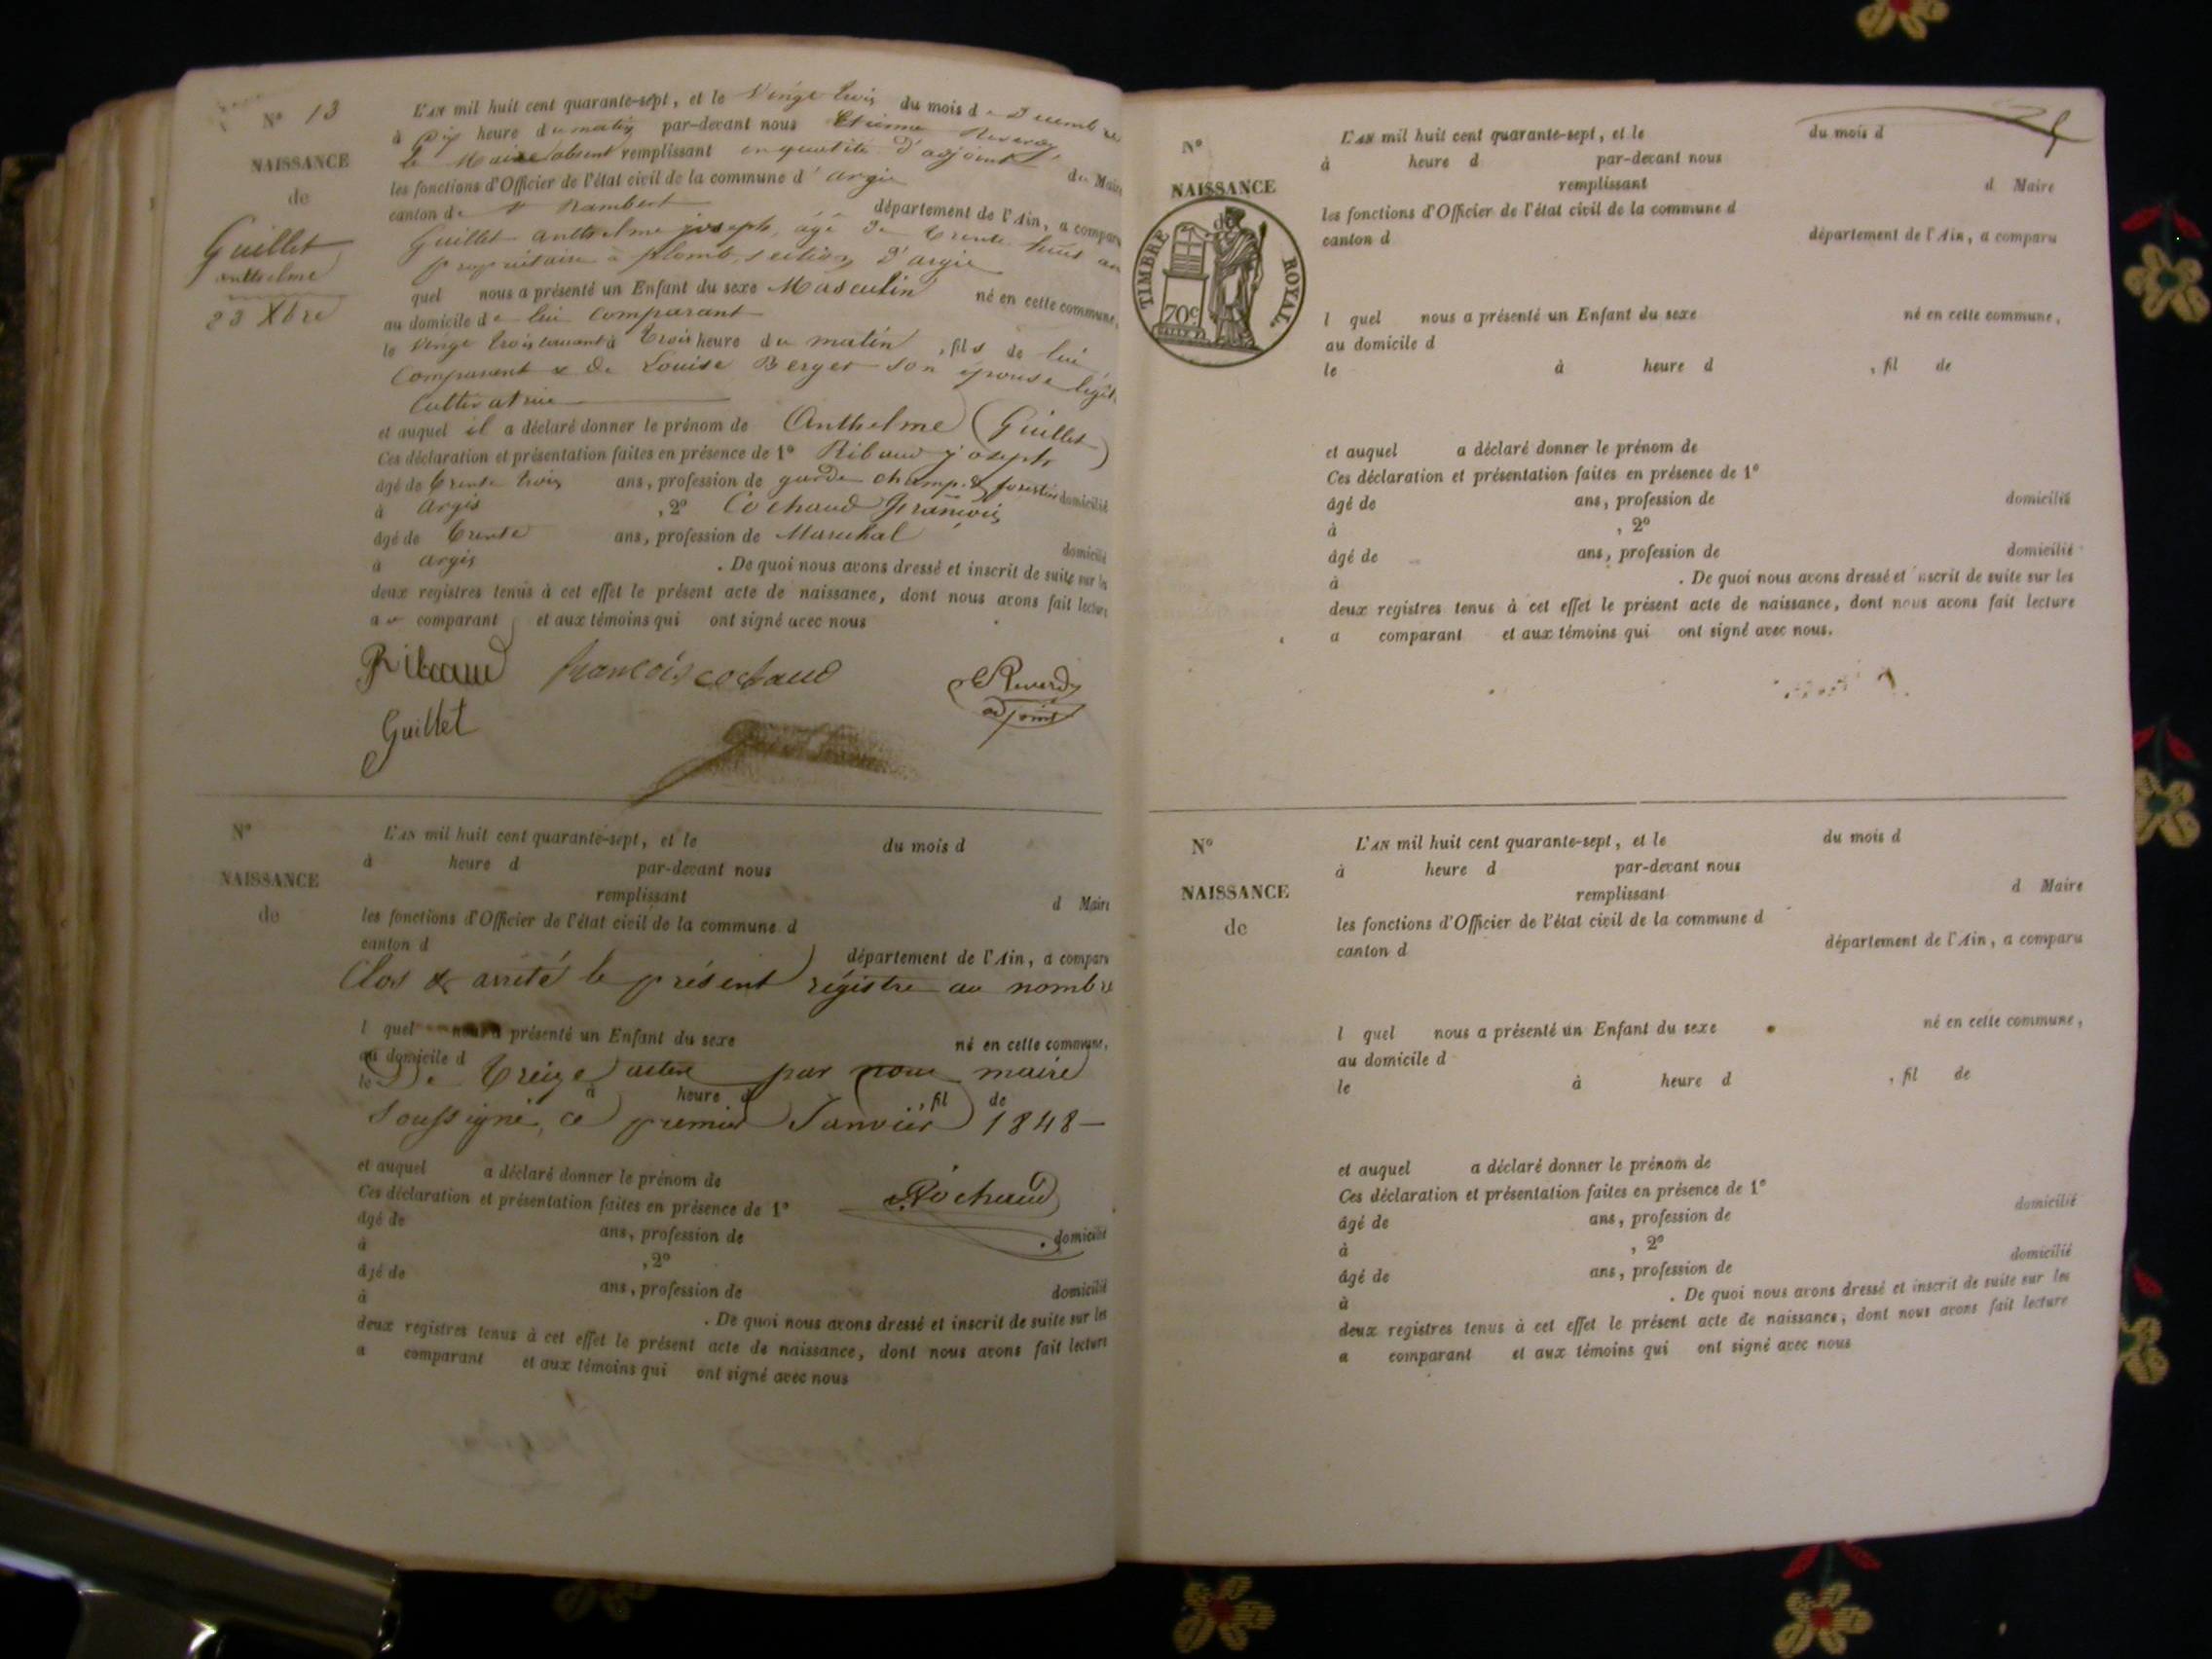 N° 13
NAISSANCE
de
Guillet
anthelme
23 Xbre
L'AN mil huit cent quarante-sept, et le Vingt trois du mois de Decembre
à Dix heure du matin par-devant nous Etienne Reverdy,
le Maire absent remplissant en qualité d'adjoint du Maire
les fonctions d'Officier de l'état civil de la commune d'argis
canton de St Rambert département de l'Ain, a comparu
Guillet anthelme joseph, âgé de trente huit ans
propriétaire à plomb, section d'argis
quel nous a présenté un Enfant du sexe Masculin né en cette commune,
au domicile de lui comparant
le Vingt trois courant à trois heure du matin, fils de lui
Comparant & de Louise Berger son épouse légit
Cultivatrice
et auquel il a déclaré donner le prénom de Anthelme (Guillet)
Ces déclaration et présentation faites en présence de 1° Ribaud joseph
âgé de trente trois ans, profession de garde champ. & forestier domicilié
à Argis , 2° Cochaud François
âgé de trente ans, profession de Marechal domicilié
à argis . De quoi nous avons dressé et inscrit de suite sur les
deux registres tenus à cet effet le présent acte de naissance, dont nous avons fait lecture
au comparant et aux témoins qui ont signé avec nous
Ribaud françois cochaud Reverdy
adjoint
Guillet
N°
NAISSANCE
de
L'AN mil huit cent quarante-sept, et le du mois d
à heure d par-devant nous
remplissant d Maire
les fonctions d'Officier de l'état civil de la commune d
canton d département de l'Ain, a comparu
Clos & arrêté le présent régistre au nombre
l quel nous a présenté un Enfant du sexe né en cette commune,
au domicile d
De treize actes par nous maire
le à heure d , fil de
Soussigné, ce premier Janvier 1848
et auquel a déclaré donner le prénom de
Rochaud
Ces déclaration et présentation faites en présence de 1°
âgé de ans, profession de domicilié
à , 2°
âgé de ans, profession de domicilié
à . De quoi nous avons dressé et inscrit de suite sur les
deux registres tenus à cet effet le présent acte de naissance, dont nous avons fait lecture
a comparant et aux témoins qui ont signé avec nous
N°
NAISSANCE
de
TIMBRE ROYAL.
70c
L'AN mil huit cent quarante-sept, et le du mois d
à heure d par-devant nous
remplissant d Maire
les fonctions d'Officier de l'état civil de la commune d
canton d département de l'Ain, a comparu
l quel nous a présenté un Enfant du sexe né en cette commune,
au domicile d
le à heure d , fil de
et auquel a déclaré donner le prénom de
Ces déclaration et présentation faites en présence de 1°
âgé de ans, profession de domicilié
à , 2°
âgé de ans, profession de domicilié
à . De quoi nous avons dressé et inscrit de suite sur les
deux registres tenus à cet effet le présent acte de naissance, dont nous avons fait lecture
a comparant et aux témoins qui ont signé avec nous.
N°
NAISSANCE
de
L'AN mil huit cent quarante-sept, et le du mois d
à heure d par-devant nous
remplissant d Maire
les fonctions d'Officier de l'état civil de la commune d
canton d département de l'Ain, a comparu
l quel nous a présenté un Enfant du sexe né en cette commune,
au domicile d
le à heure d , fil de
et auquel a déclaré donner le prénom de
Ces déclaration et présentation faites en présence de 1°
âgé de ans, profession de domicilié
à , 2°
âgé de ans, profession de domicilié
à . De quoi nous avons dressé et inscrit de suite sur les
deux registres tenus à cet effet le présent acte de naissance, dont nous avons fait lecture
a comparant et aux témoins qui ont signé avec nous